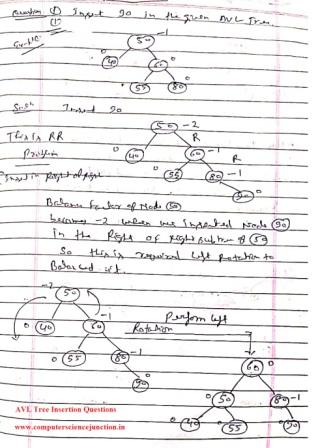 Question ① Insert 90 in the given AVL Tree.
①
-1
50
0 40 60 0
0 55 80 0
Insert 90
50 -2
R
This is RR
0 40 60 -1
Problem
R
0 55 80 -1
Insert in Right of Right
90 0
Balance Factor of Node 50
becomes -2 when we inserted Node 90
in the Right of right subtree of 50
So this is required Left Rotation to
Balanced it.
-2
50
0 40 60 -1
Perform left
Rotation
0 55 80 -1
90 0
60 0
0 50 80 -1
0 40 55 0 90 0
AVL Tree Insertion Questions
www.computersciencejunction.in